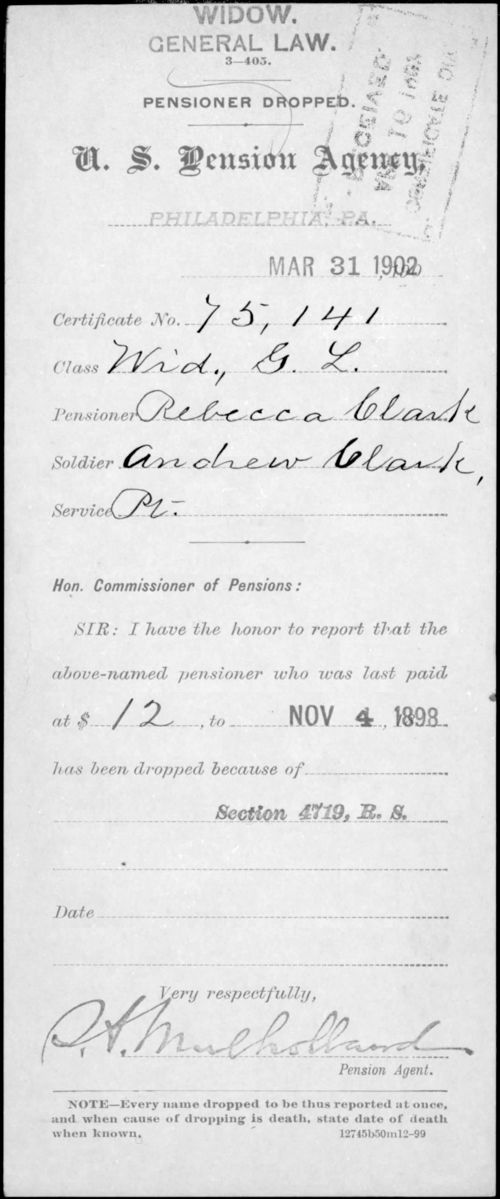 WIDOW.
GENERAL LAW.
3—405.
PENSIONER DROPPED.
U. S. Pension Agency,
PHILADELPHIA, PA.
MAR 31 1902
Certificate No. 75,141
Class Wid., G. L.
Pensioner Rebecca Clark
Soldier Andrew Clark,
Service Pt.
Hon. Commissioner of Pensions:
SIR: I have the honor to report that the
above-named pensioner who was last paid
at $ 12, to NOV 4, 1898
has been dropped because of
Section 4719, R. S.
Date
Very respectfully,
St. A. Mulholland
Pension Agent.
NOTE—Every name dropped to be thus reported at once,
and when cause of dropping is death, state date of death
when known. 12745b50m12-99
RECEIVED